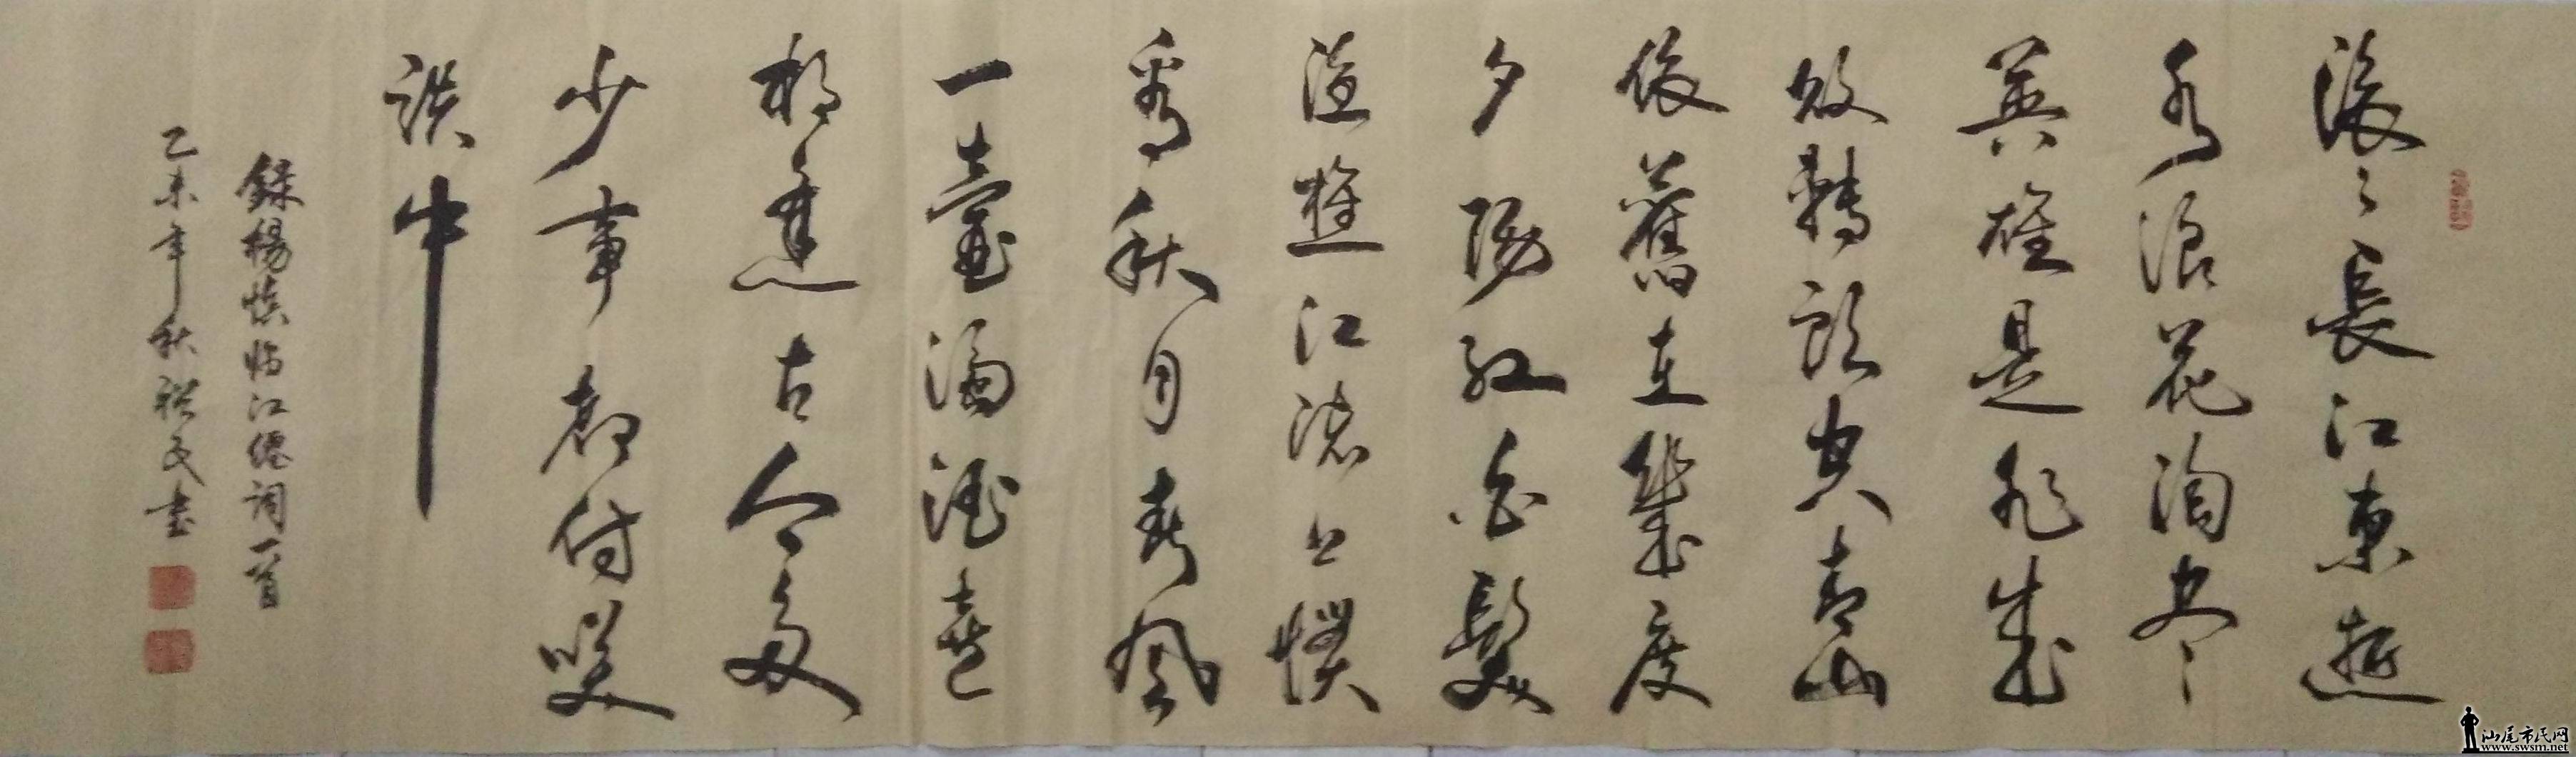 滚〻長江東逝
水浪花淘尽
英雄是非成
敗轉頭空青山
依舊在幾度
夕陽紅白髮
漁樵江渚上慣
看秋月春風
一壺濁酒喜
相逢古今多
少事都付笑
談中
録楊慎临江仙词一首
乙未年秋 书
汕尾市民网
www.swsm.net